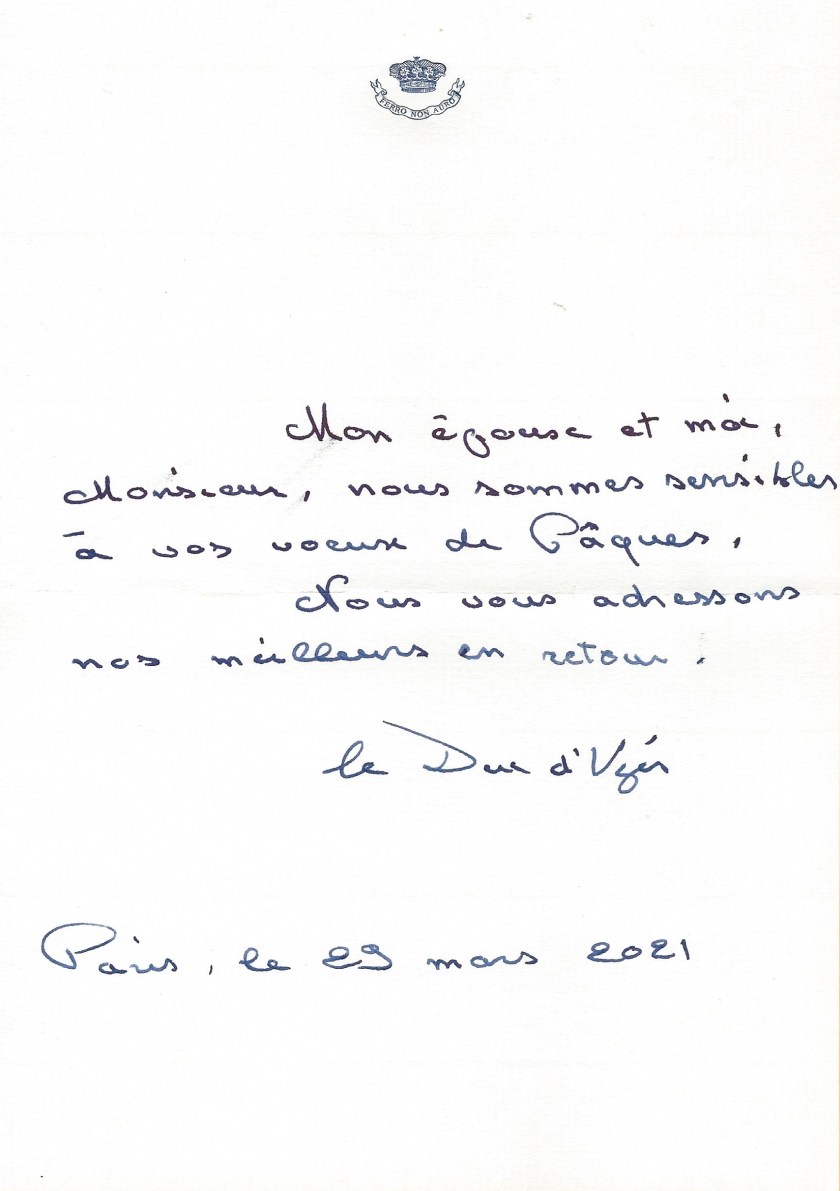 FERRO NON AURO
Mon épouse et moi,
Monsieur, nous sommes sensibles
à vos voeux de Pâques,
Nous vous adressons
nos meilleurs en retour.
le Duc d'Uzès
Paris, le 29 mars 2021